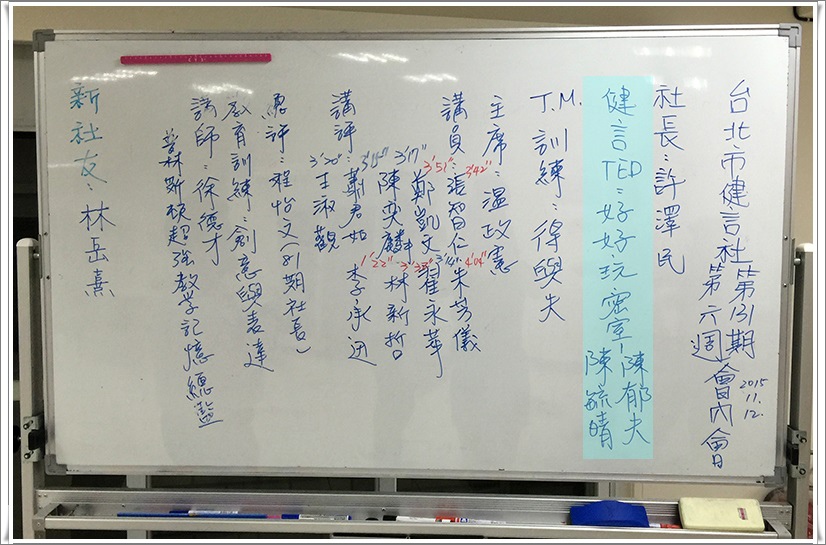 台北市健言社第131期
第六週會內會
2015
11.
12.
社長：許澤民
健言TED：好好玩密室！陳郁夫
陳毓晴
T.M.訓練：得與失
主席：溫政憲
講員：張智仁 3'42" 朱芳儀 4'04"
3'51" 鄭凱文 崔永華
3'17" 陳奕麟 林新哲
講評：鄭君如 李承迅
3'30" 王淑觀
總評：程怡文(81期社長)
教育訓練：創意與表達
講師：徐德才
普林斯頓超強教学記憶總監
新社友：林岳熹